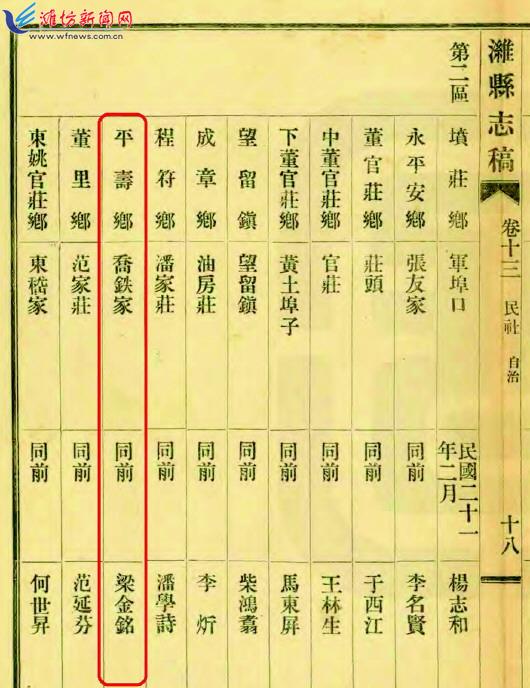 潍坊新闻网
www.wfnews.com.cn
濰縣志稿
卷十三
民社
自治
十八
第二區
墳莊鄉 軍埠口 民國二十一年二月 楊志和
永平安鄉 張友家 同前 李名賢
董官莊鄉 莊頭 同前 于西江
中董官莊鄉 官莊 同前 王林生
下董官莊鄉 黃土埠子 同前 馬東屏
望留鎮 望留鎮 同前 柴鴻翥
成章鄉 油房莊 同前 李炘
程符鄉 潘家莊 同前 潘學詩
平壽鄉 喬鉄家 同前 梁金銘
董里鄉 范家莊 同前 范延芬
東姚官莊鄉 東楛家 同前 何世昇